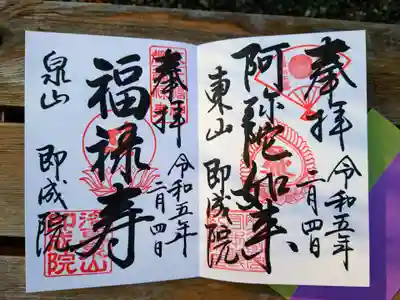 奉拝
令和五年
二月四日
阿弥陀如来
東山 即成院
奉拝
令和五年
二月四日
福禄寿
泉山 即成院
即成院